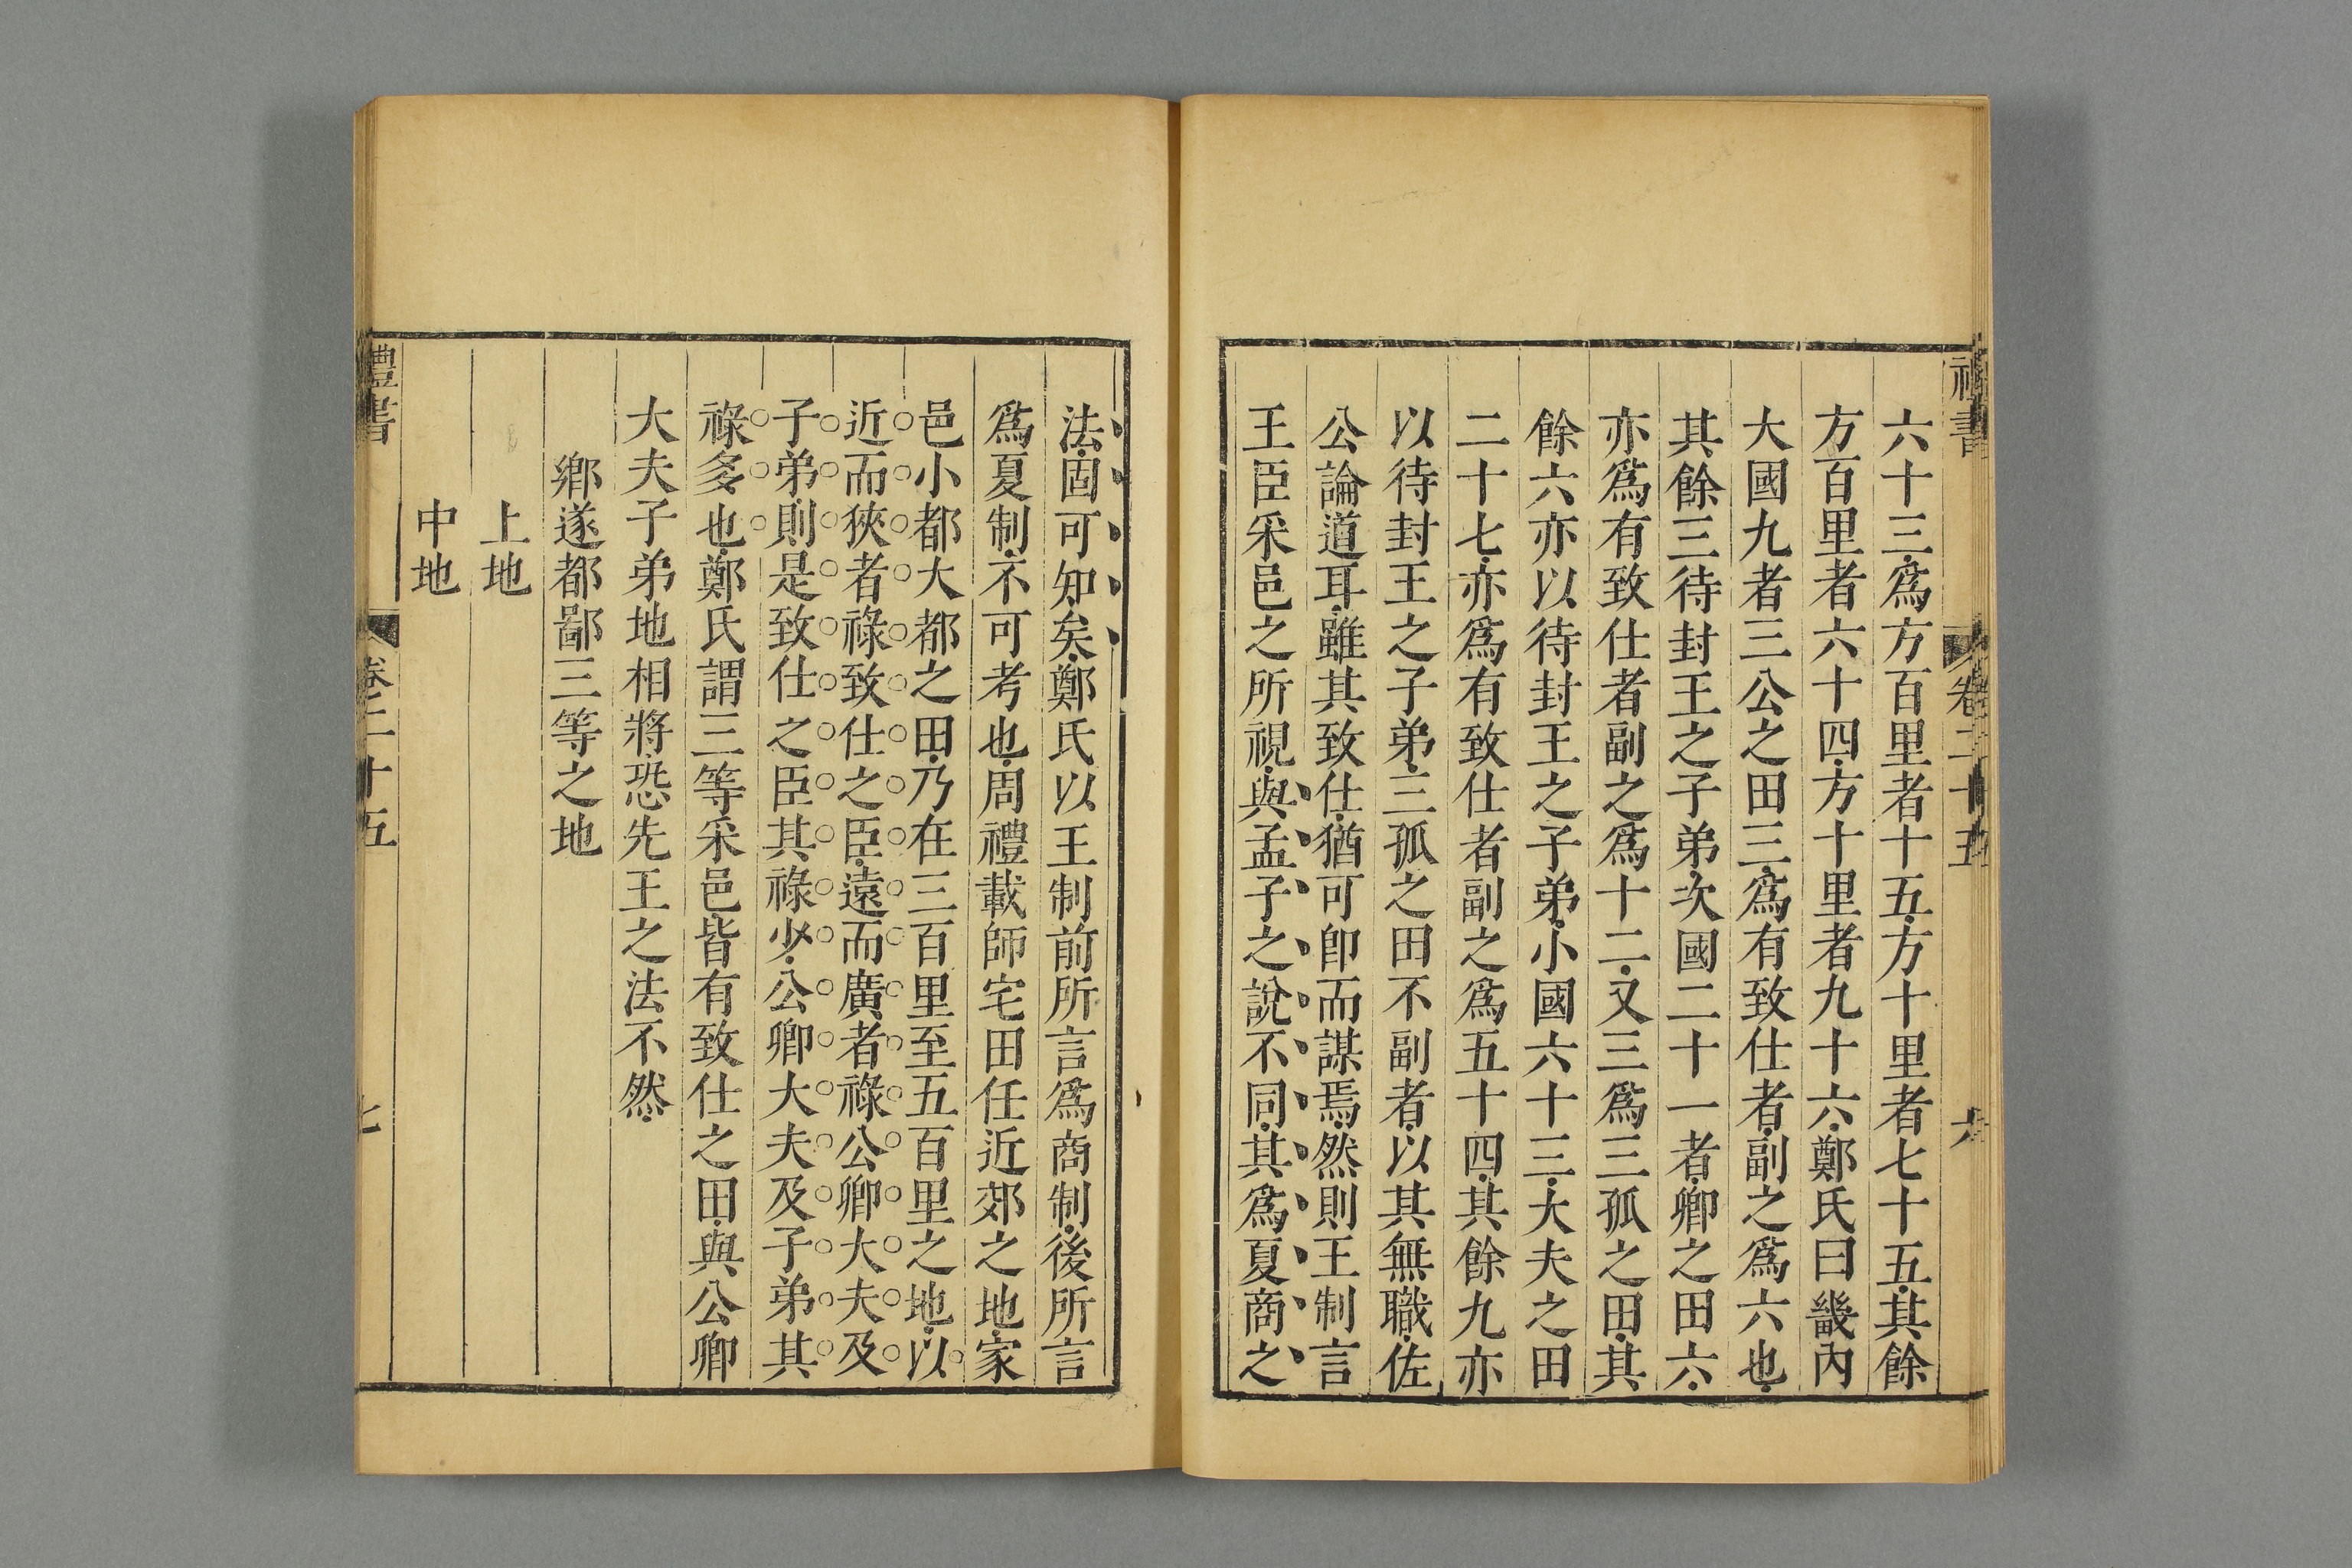 禮書 卷二十五 六
六十三爲方百里者十五方十里者七十五其餘
方百里者六十四方十里者九十六鄭氏曰畿內
大國九者三公之田三爲有致仕者副之爲六也
其餘三待封王之子弟次國二十一者卿之田六
亦爲有致仕者副之爲十二又三爲三孤之田其
餘六亦以待封王之子弟小國六十三大夫之田
二十七亦爲有致仕者副之爲五十四其餘九亦
以待封王之子弟三孤之田不副者以其無職佐
公論道耳雖其致仕猶可卽而謀焉然則王制言
王臣采邑之所視與孟子之說不同其爲夏商之
法固可知矣鄭氏以王制前所言爲商制後所言
爲夏制不可考也周禮載師宅田任近郊之地家
邑小都大都之田乃在三百里至五百里之地以
近而狹者祿致仕之臣遠而廣者祿公卿大夫及
子弟則是致仕之臣其祿少公卿大夫及子弟其
祿多也鄭氏謂三等采邑皆有致仕之田與公卿
大夫子弟地相將恐先王之法不然
鄉遂都鄙三等之地
上地
中地
禮書 卷二十五 七